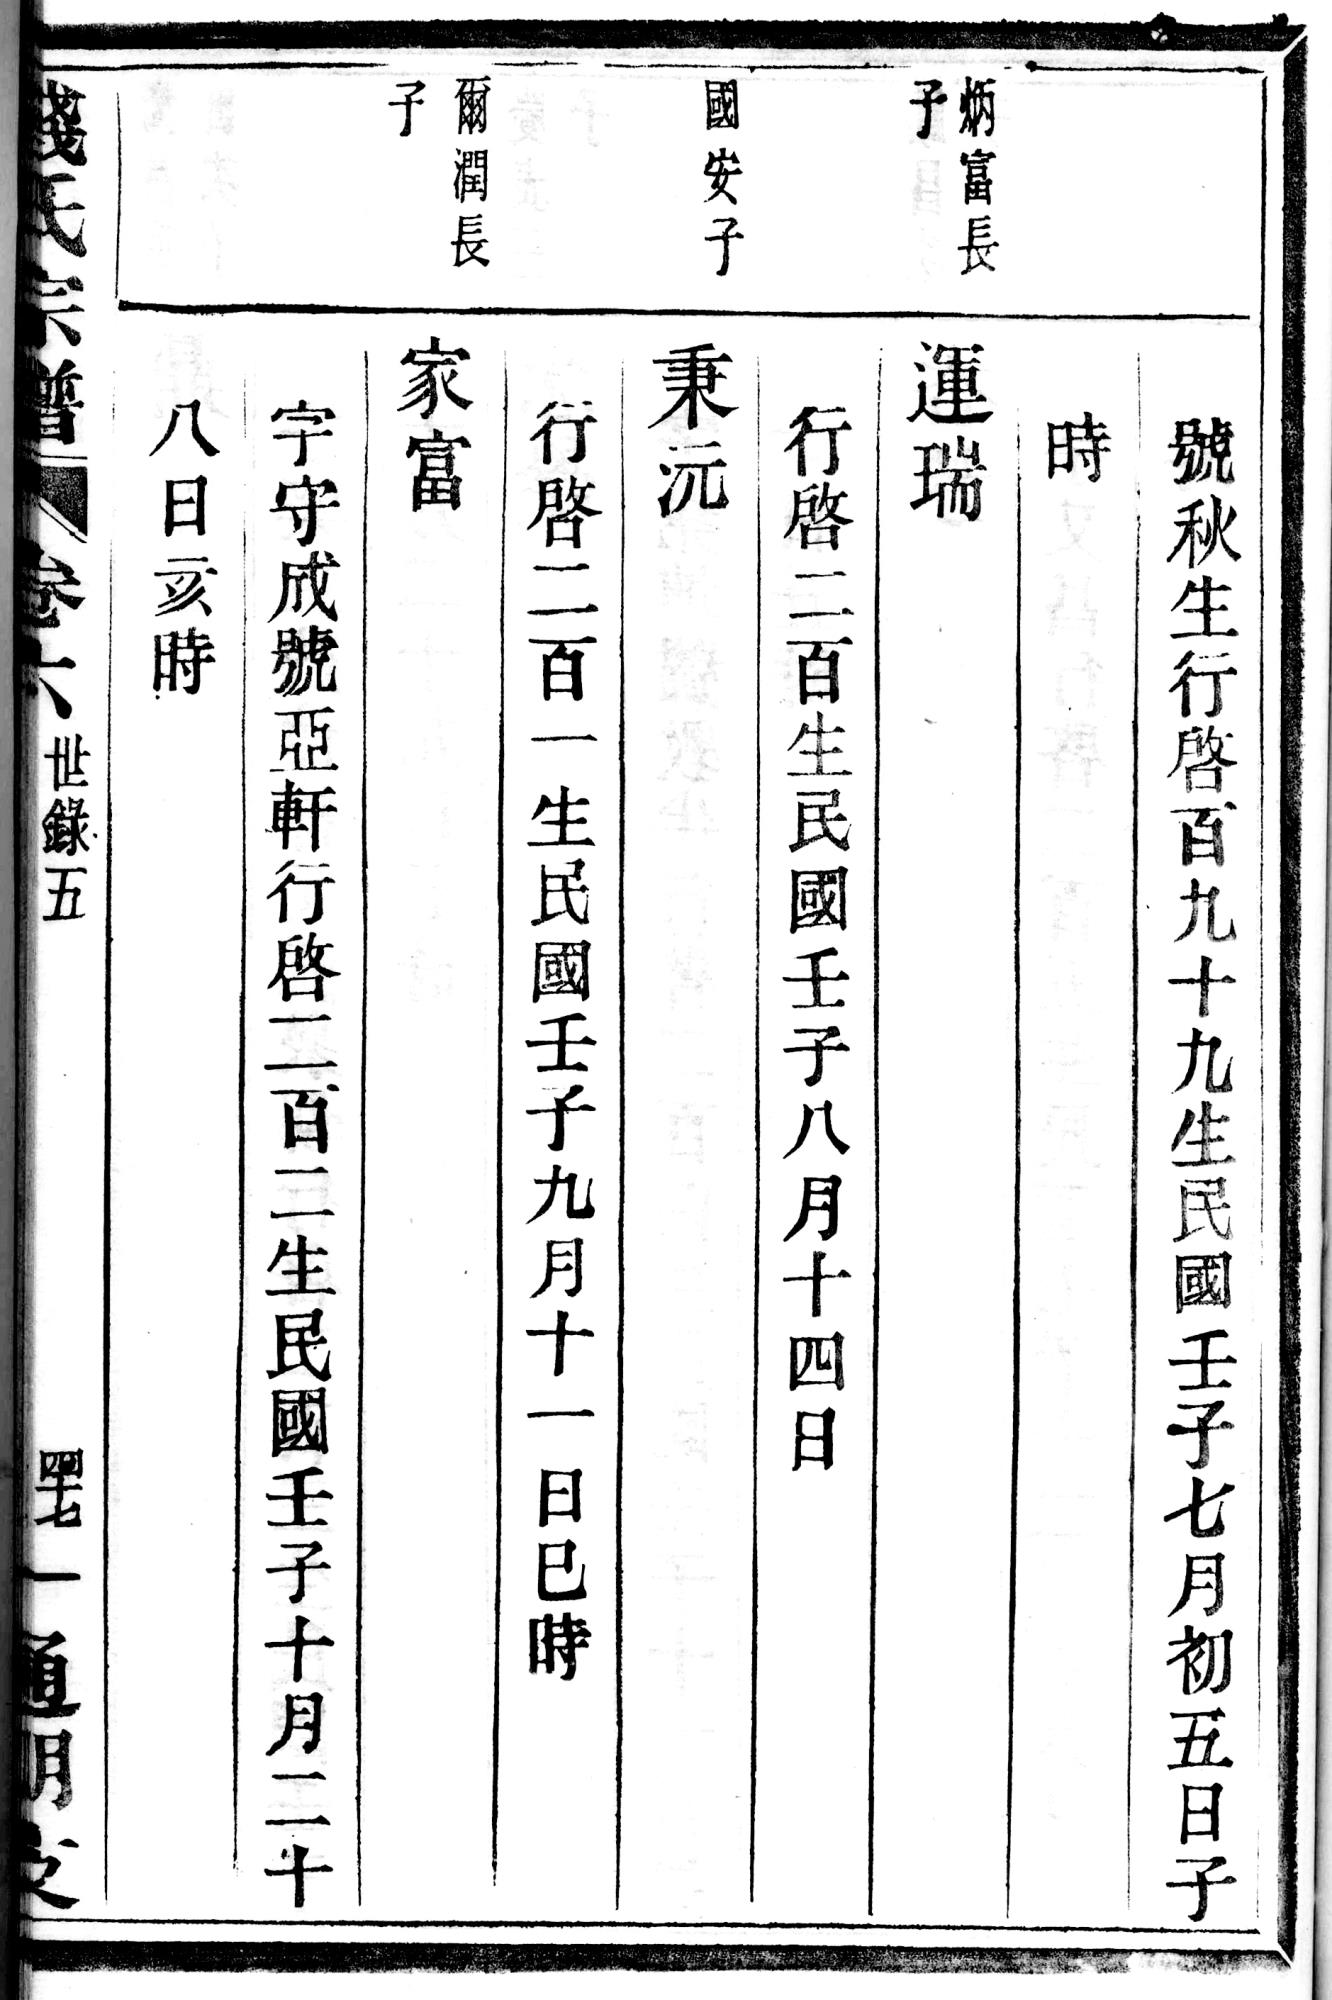 號秋生行啓百九十九生民國壬子七月初五日子
時
炳富長
子
運瑞
行啓二百生民國壬子八月十四日
國安子
秉沅
行啓二百一生民國壬子九月十一日巳時
爾潤長
子
家富
字守成號亞軒行啓二百二生民國壬子十月二十
八日亥時
錢氏宗譜
卷六
世錄五
四十七
通明支